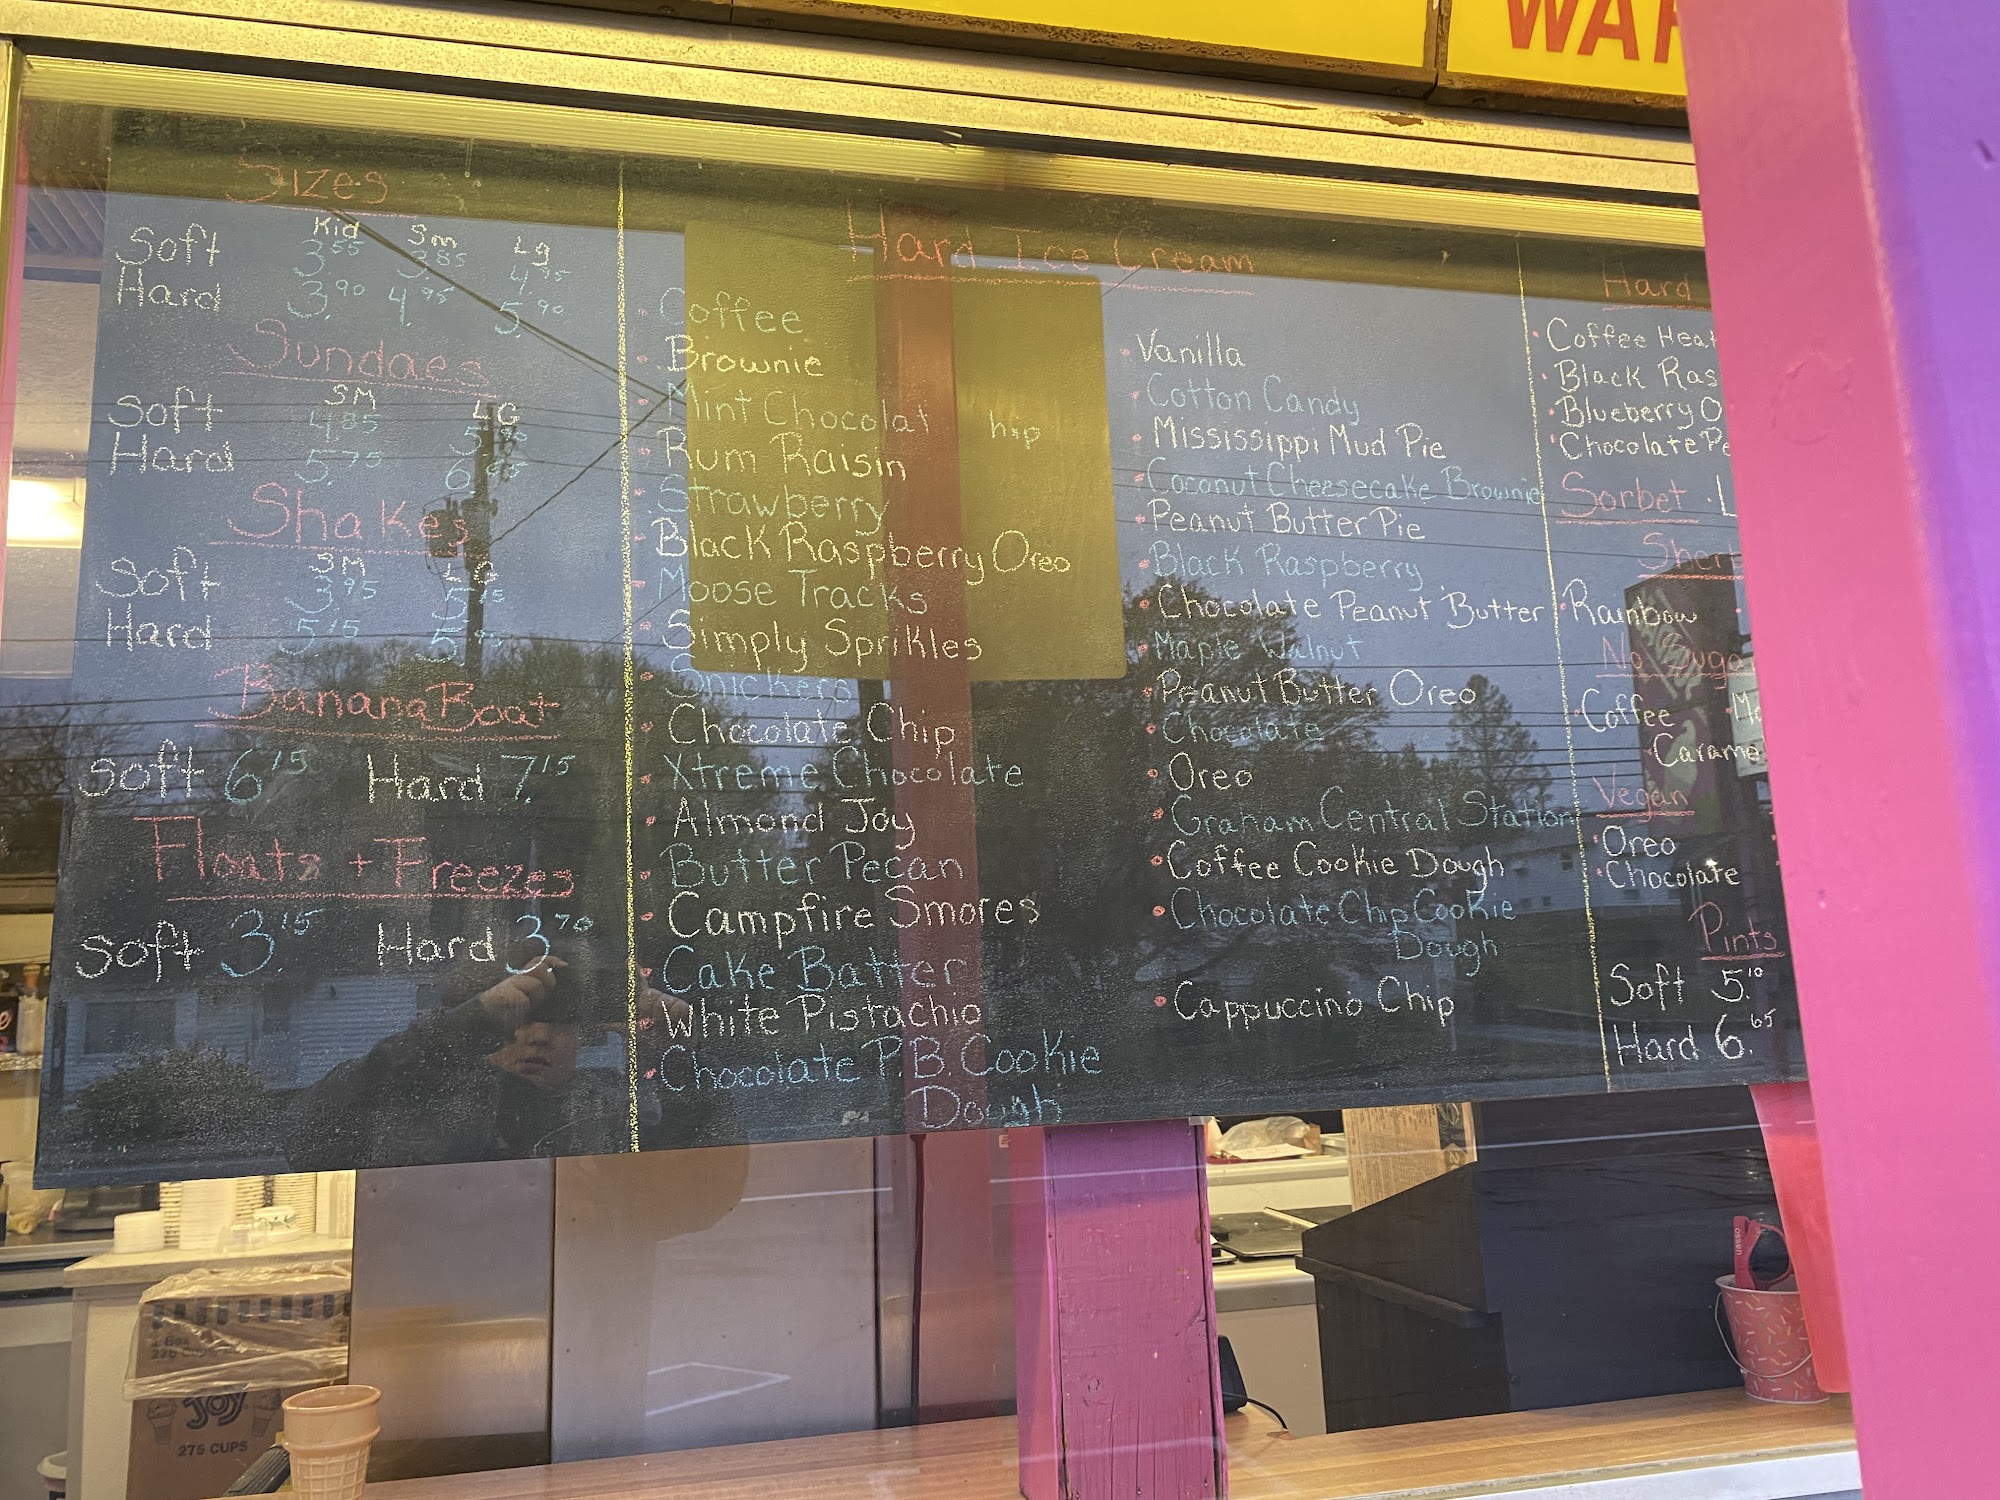 WAR
Sizes
Kid Sm Lg
Soft 3.55 3.85 4.
Hard 3.90 4.95 5.90
Sundaes
SM LG
Soft 4.85 5.
Hard 5.75 6.
Shakes
SM LG
Soft 3.95 5.
Hard 5.15 5.
Banana Boat
Soft 6.15 Hard 7.15
Floats + Freezes
Soft 3.15 Hard 3.70
Hard Ice Cream
· Coffee
· Brownie
· Mint Chocolat hip
· Rum Raisin
· Strawberry
· Black Raspberry Oreo
· Moose Tracks
· Simply Sprikles
· Snickers
· Chocolate Chip
· Xtreme Chocolate
· Almond Joy
· Butter Pecan
· Campfire Smores
· Cake Batter
· White Pistachio
· Chocolate P.B. Cookie
Dough
· Vanilla
· Cotton Candy
· Mississippi Mud Pie
· Coconut Cheesecake Brownie
· Peanut Butter Pie
· Black Raspberry
· Chocolate Peanut Butter
· Maple Walnut
· Peanut Butter Oreo
· Chocolate
· Oreo
· Graham Central Station
· Coffee Cookie Dough
· Chocolate Chip Cookie
Dough
· Cappuccino Chip
Hard
· Coffee Heat
· Black Ras
· Blueberry O
· Chocolate Pe
Sorbet · L
Sher
· Rainbow
No Suga
· Coffee · Ma
· Carame
Vegan
· Oreo
· Chocolate
Pints
Soft 5.10
Hard 6.65
JOY
275 CUPS